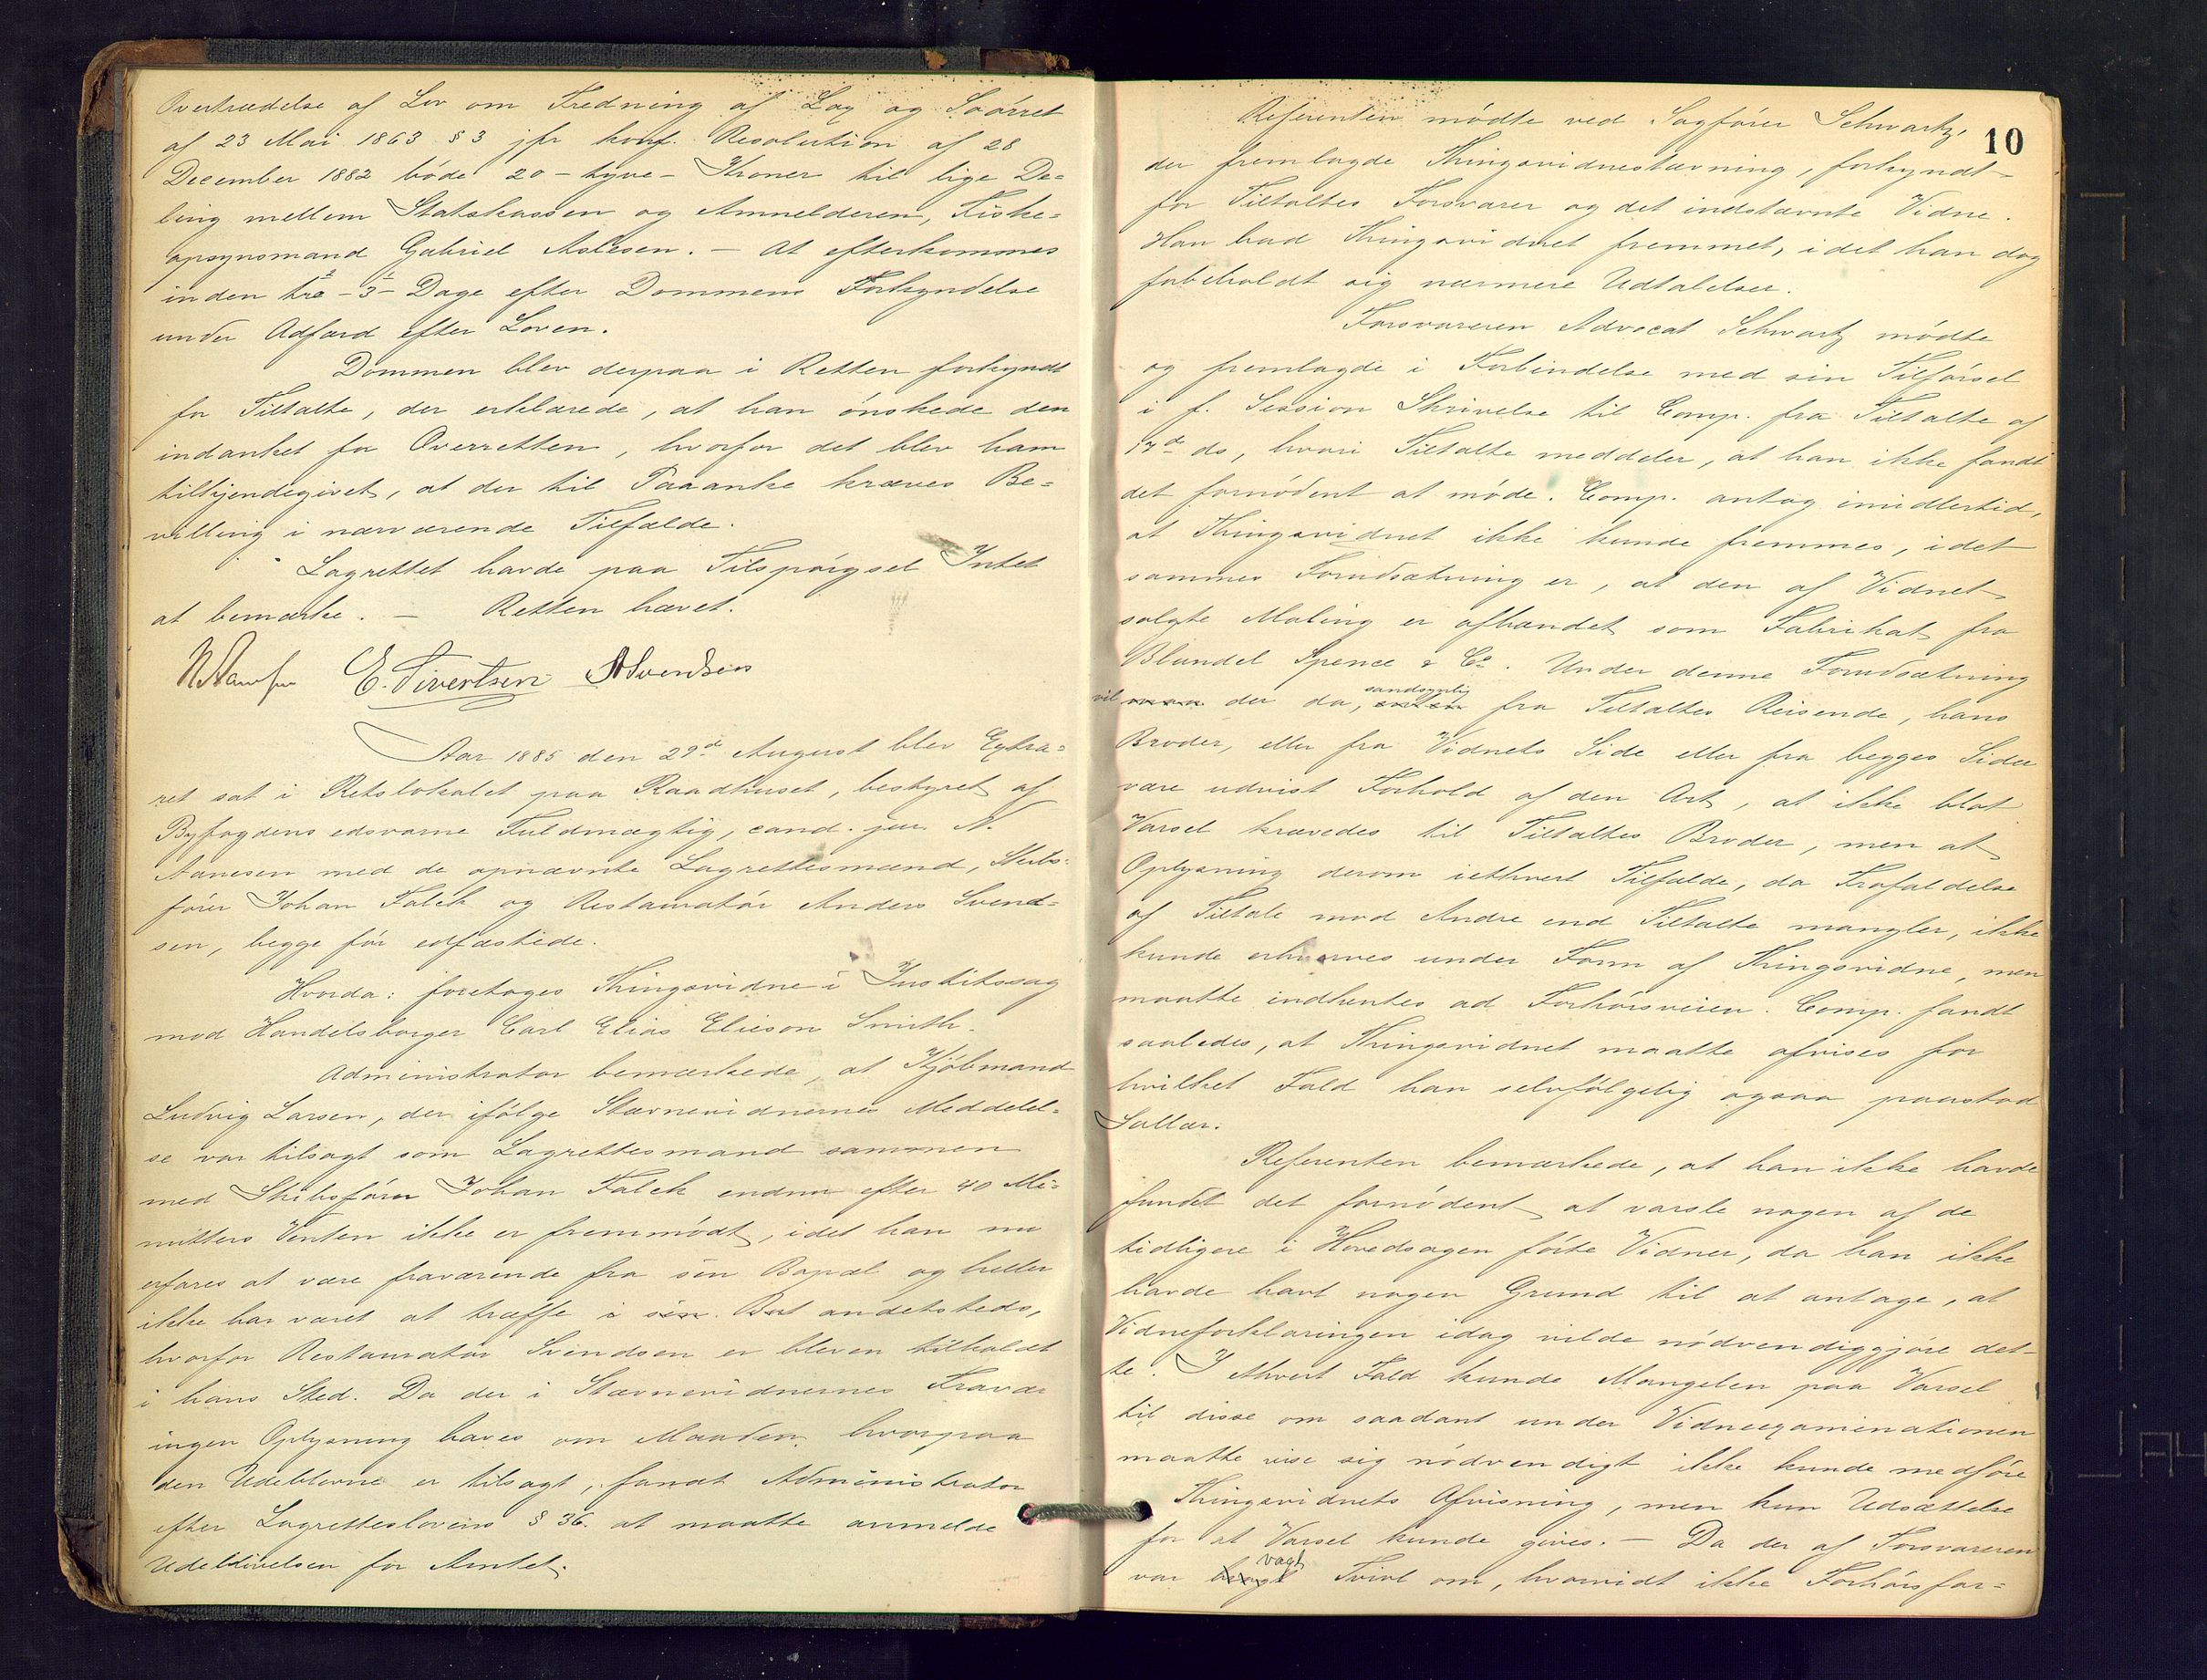 Overtrædelse af Lov om Fredning af Lax og Søørret
af 23 Mai 1863 § 3 jfr konf. Resolution af 28
December 1882 bøde 20 - tyve - Kroner til lige De=
ling mellem Statskassen og Anmelderen, Fiske=
opsynsmand Gabriel Aslesen. - At efterkommes
inden tre - 3 - Dage efter Dommens Forkyndelse
under Adfærd efter Loven.
Dommen blev derpaa i Retten forkyndt
for Tiltalte, der erklærede, at han ønskede den
indanket for Overretten, hvorfor det blev ham
tilkjendegivet, at der til Paaanke kræves Be=
villing i nærværende Tilfælde.
Lagrettet havde paa Tilspørgsel Intet
at bemærke. - Retten hævet.
E. Sivertsen A Svendsen
Aar 1885 den 29d August blev Extra=
ret sat i Retslokalet paa Raadhuset, bestyret af
Byfogdens edsvorne Fuldmægtig, cand. jur. N.
Aanesen med de opnævnte Lagrettesmænd, Skibs=
fører Johan Falck og Restauratør Anders Svend=
sen, begge før edfæstede.
Hvorda: foretoges Thingsvidne i Justitssag
mod Handelsborger Carl Elias Elieson Smith.
Administrator bemærkede, at Kjøbmand
Ludvig Larsen, der ifølge Stævnevidnernes Meddelel=
se var tilsagt som Lagrettesmand sammen
med Skibsfører Johan Falck endnu efter 40 Mi=
nutters Venten ikke er fremmødt, idet han nu
erfares at være fraværende fra sin Bopæl og heller
ikke har været at træffe i sin Bod andetsteds,
hvorfor Restauratør Svendsen er bleven tilkaldt
i hans Sted. Da der i Stævnevidnernes Fravær
ingen Oplysning haves om Maaden, hvorpaa
den Udeblevne er tilsagt, fandt Administrator
efter Lagretteslovens § 36. at maatte anmelde
Udeblivelsen for Amtet.
10
Referenten mødte ved Sagfører Schwartz,
der fremlagde Thingsvidnestævning, forkyndt
for Tiltaltes Forsvarer og det indstævnte Vidne.
Han bad Thingsvidnet fremmet, idet han dog
forbeholdt sig nærmere Udtalelser.
Forsvareren Advocat Schwartz mødte
og fremlagde i Forbindelse med sin Tilførsel
i f. Session Skrivelse til Comp. fra Tiltalte af
17de ds, hvori Tiltalte meddeler, at han ikke fandt
det fornødent at møde. Comp. antog imidlertid,
at Thingsvidnet ikke kunde fremmes, idet
sammes Forudsætning er, at den af Vidnet
solgte Maling er afhændet som Fabrikat fra
Blundel Spence & Co. Under denne Forudsætning
vil der da, sandsynlig fra Tiltaltes Reisende, hans
Broder, eller fra Vidnets Side eller fra begges Sider
være udvist Forhold af den Art, at ikke blot
Varsel krævedes til Tiltaltes Broder, men at
Oplysning derom iethvert Tilfælde, da Frafaldelse
af Tiltale mod Andre end Tiltalte mangler, ikke
kunde erhverves under Form af Thingsvidne, men
maatte indhentes ad Forhørsveien. Comp. fandt
saaledes, at Thingsvidnet maatte afvises for
hvilket Fald han selvfølgelig ogsaa paastod
Sallær.
Referenten bemærkede, at han ikke havde
fundet det fornødent at varsle nogen af de
tidligere i Hovedsagen førte Vidner, da han ikke
havde havt nogen Grund til at antage, at
Vidneforklaringen idag vilde nødvendiggjøre det=
te. I ethvert Fald kunde Mangelen paa Varsel
til disse om saadant under Vidneexaminationen
maatte vise sig nødvendigt ikke kunde medføre
Thingsvidnets Afvisning, men kun Udsættelse
for at Varsel kunde gives. - Da der af Forsvareren
var vagt Tvivl om, hvorvidt ikke Forhørsfor=